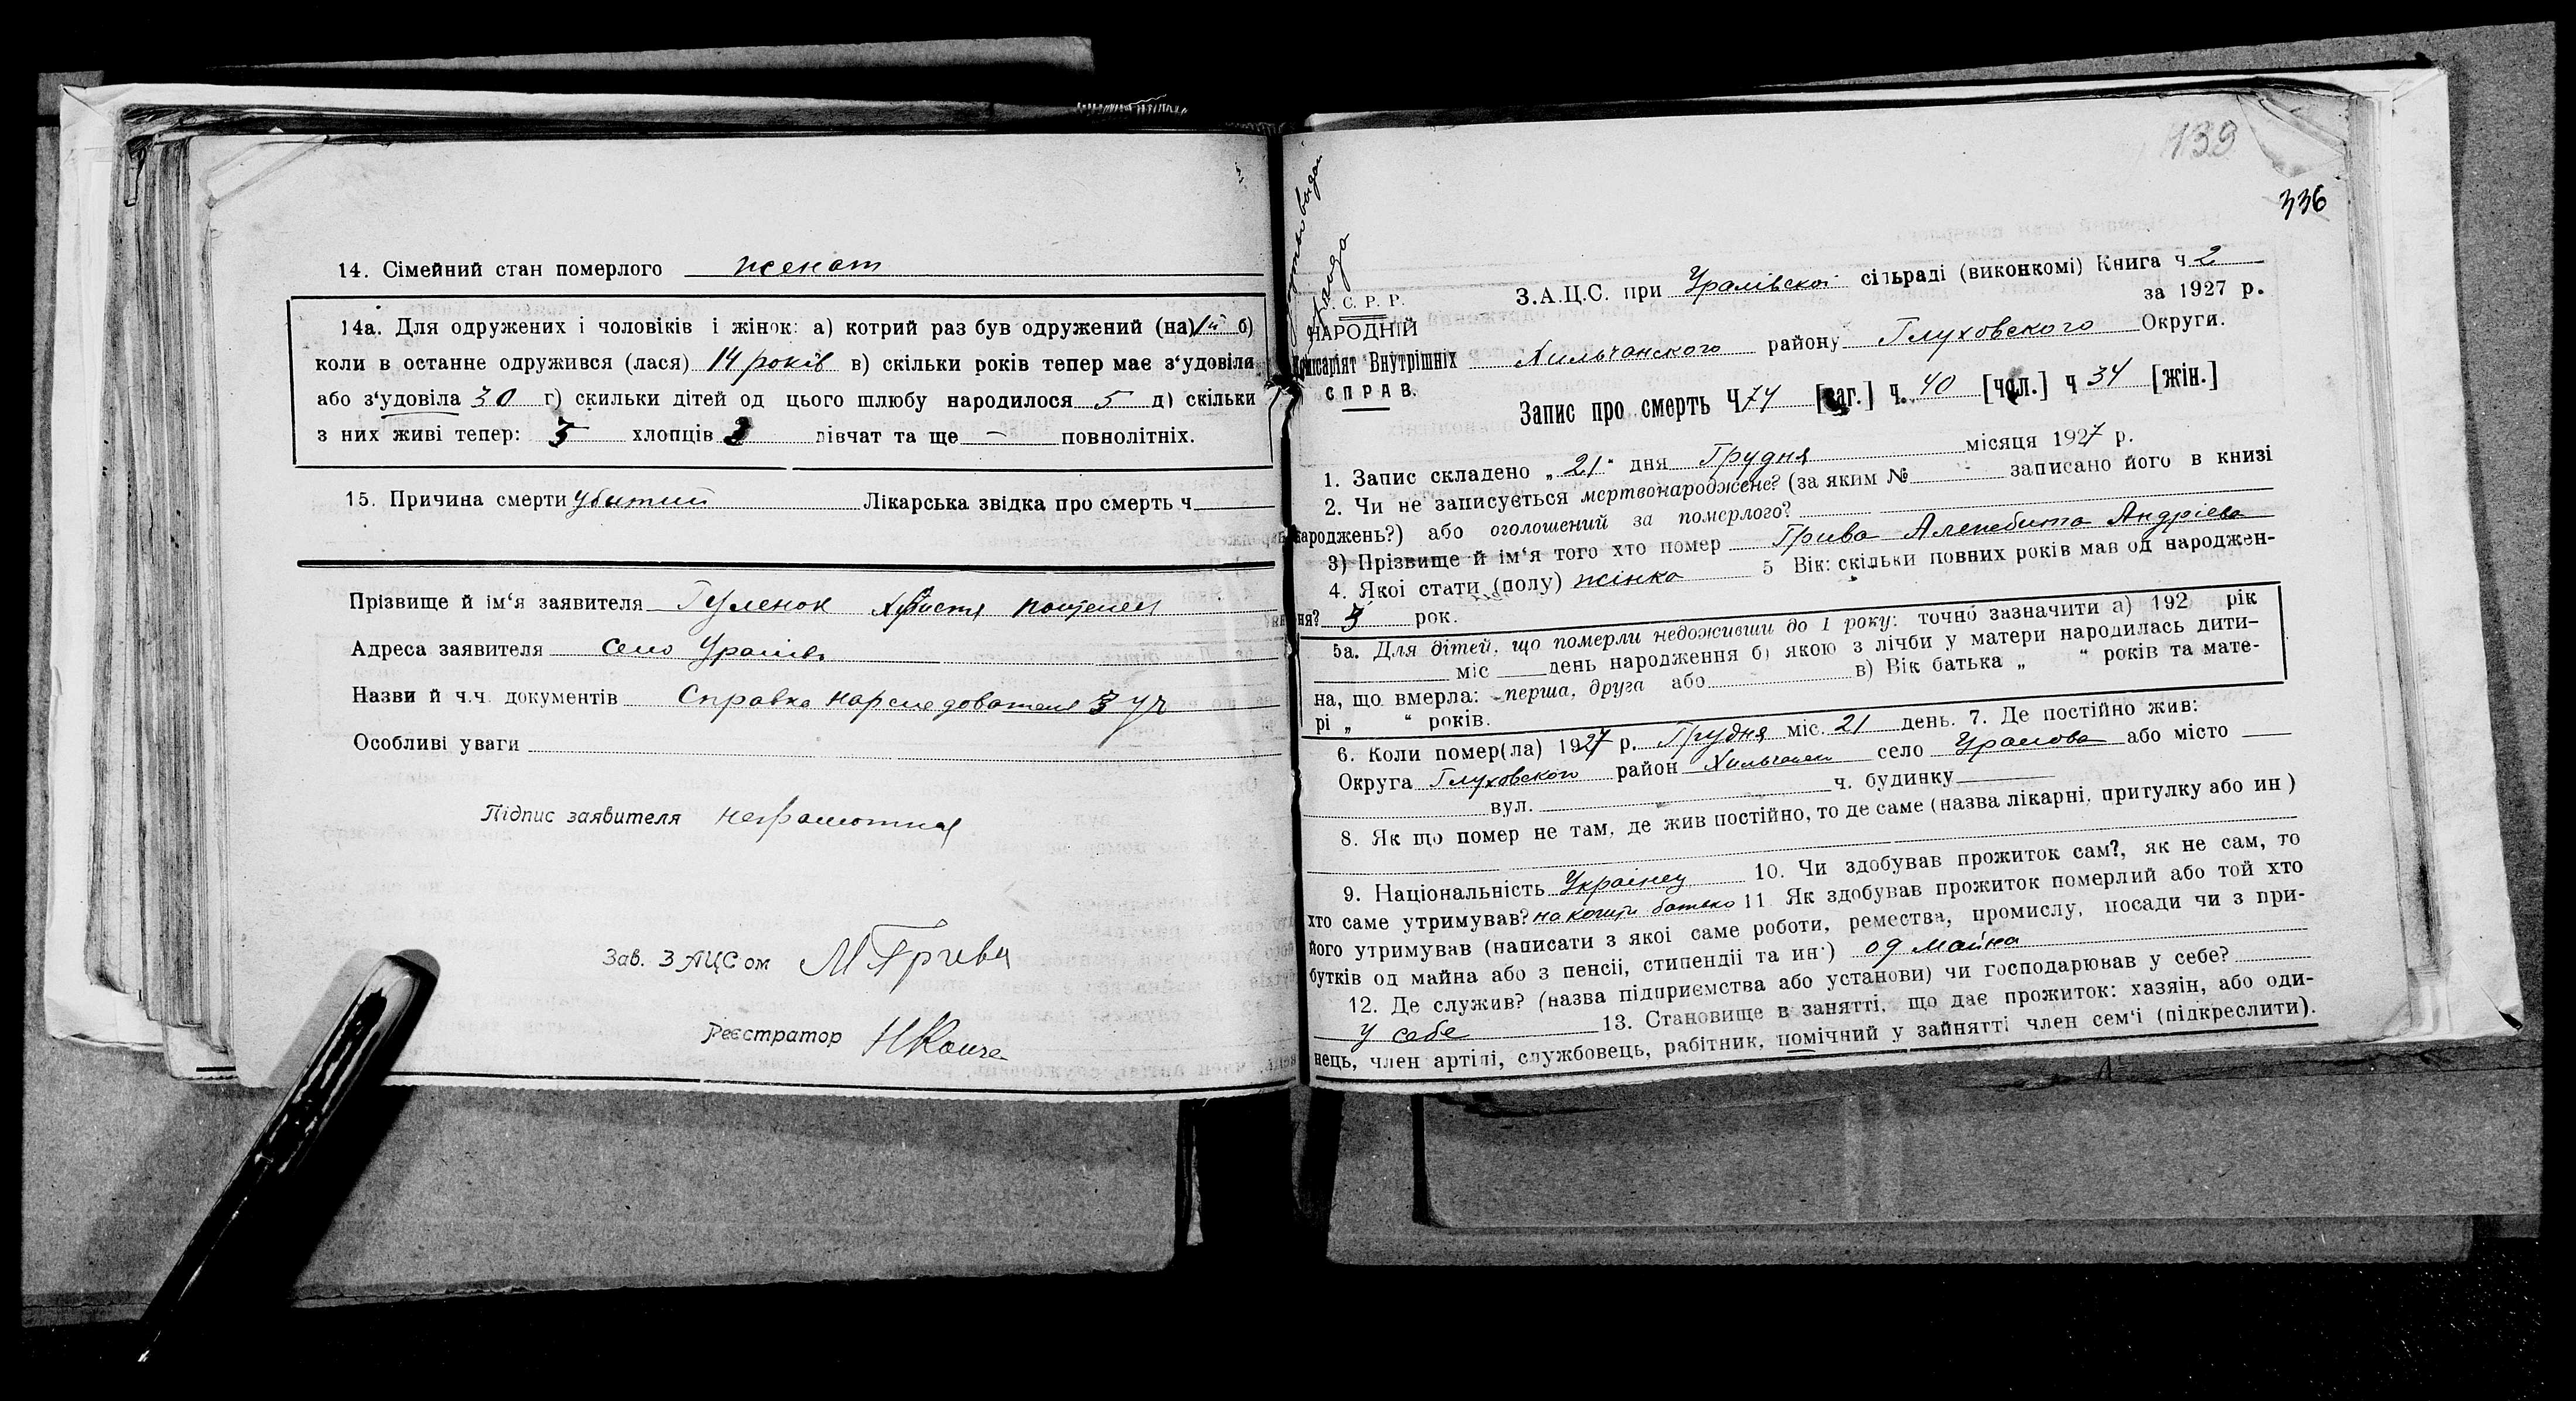 14. Сімейний стан померлого женат
14а. Для одружених і чоловіків і жінок: а) котрий раз був одружений (на) 1й б)
коли в останне одружився (лася) 14 років в) скільки років тепер має з'удовіла
або з'удовіла 30 г) скильки дітей од цього шлюбу народилося 5 д) скільки
з них живі тепер: хлопців дівчат та ще — повнолітніх.
15. Причина смерти убитий Лікарська звідка про смерть ч
Прізвище й ім'я заявителя Гуленок Христя
Адреса заявителя село Уралів
Назви й ч.ч. документів Справка нарследователя 3 уч
Особливі уваги
Підпис заявителя неграмотная
Зав. ЗАЦСом М Грива
Реєстратор
139
336
С. Р. Р.
НАРОДНІЙ
Комісаріят Внутрішніх
СПРАВ.
З.А.Ц.С. при Уралівской сільраді (виконкомі) Книга ч 2
за 1927 р.
Хильчанского району Глуховского Округи.
Запис про смерть Ч 74 [заг.] ч. 40 [чол.] ч 34 [жін.]
1. Запис складено „21" дня Грудня місяця 1927 р.
2. Чи не записується мертвонароджене? (за яким № записано його в книзі
народжень?) або оголошений за померлого?
3) Прізвище й ім'я того хто помер Грива Андріева
4. Якої стати (полу) жінка 5 Вік: скільки повних років мав од народжен-
ня? 3 рок.
5а. Для дітей, що померли недоживши до 1 року: точно зазначити а) 192 рік
міс день народження б) якою з лічби у матери народилась дити-
на, що вмерла: перша, друга або в) Вік батька „ " років та мате-
рі „ " років.
6. Коли помер(ла) 1927 р. Грудня міс. 21 день. 7. Де постійно жив:
Округа Глуховского район Хильчанск село Уралова або місто
вул. ч. будинку
8. Як що помер не там, де жив постійно, то де саме (назва лікарні, притулку або ин)
9. Національність Українец 10. Чи здобував прожиток сам?, як не сам, то
хто саме утримував? на кошти батько 11 Як здобував прожиток померлий або той хто
його утримував (написати з якої саме роботи, ремества, промислу, посади чи з при-
бутків од майна або з пенсії, стипендії та ин') од майна
12. Де служив? (назва підприємства або установи) чи господарював у себе?
у себе 13. Становище в занятті, що дає прожиток: хазяін, або оди-
нець, член артілі, службовець, рабітник, помічний у зайнятті член сем'і (підкреслити).